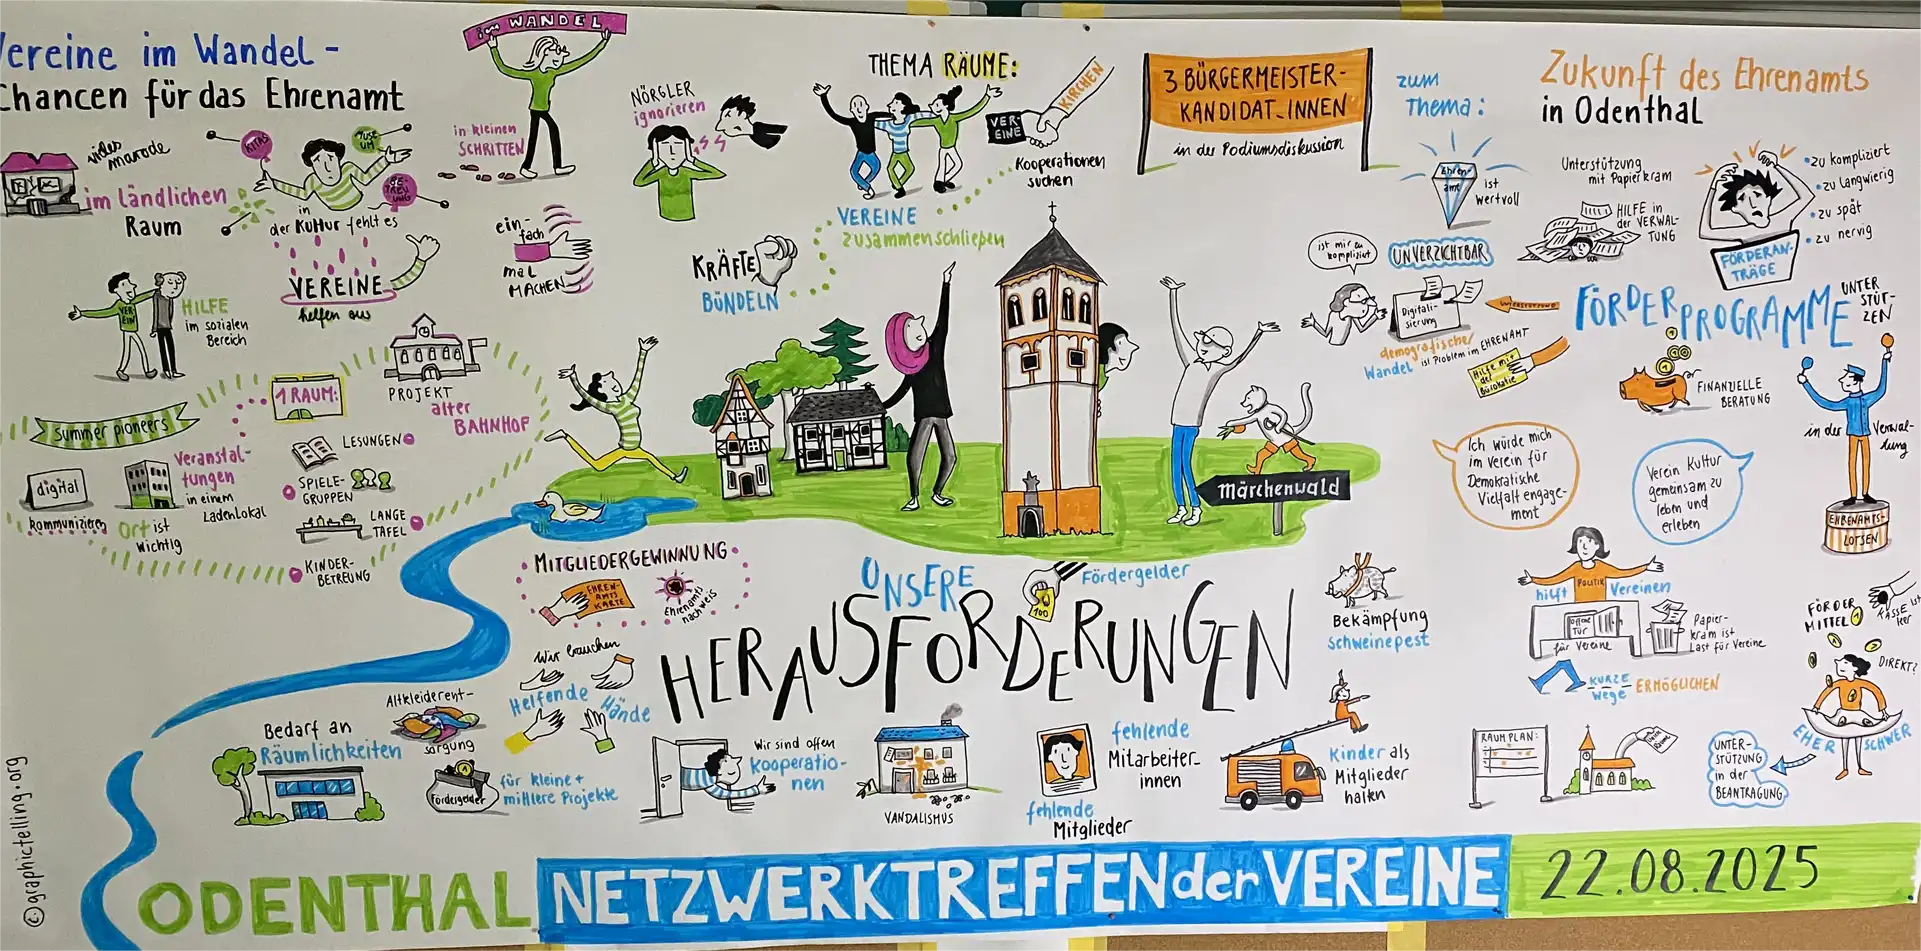 Vereine im Wandel -
Chancen für das Ehrenamt
im WANDEL
in kleinen
SCHRITTEN
vieles
marode
im ländlichen
Raum
KITAS
MUSE
UM
BE-
TREU
UNG
in
der Kultur fehlt es
VEREINE
helfen aus
ein-
fach
mal
MACHEN
VER
EIN
HILFE
im sozialen
Bereich
summer pioneers
1 RAUM:
PROJEKT
alter
BAHNHOF
digital
kommunizieren
Veranstal-
tungen
in einem
Ladenlokal
Ort ist
wichtig
LESUNGEN
SPIELE-
GRUPPEN
LANGE
TAFEL
KINDER-
BETREUNG
NÖRGLER
ignorieren
THEMA RÄUME:
VER-
EINE
KIRCHEN
Kooperationen
suchen
VEREINE
zusammenschließen
KRÄFTE
BÜNDELN
3 BÜRGERMEISTER-
KANDIDAT_INNEN
in der Podiumsdiskussion
Märchenwald
zum
Thema:
Ehren-
amt
ist
wertvoll
UNVERZICHTBAR
ist mir zu
kompliziert
Digitali-
sierung
UNTERSTÜTZUNG
demografischer
Wandel ist Problem im EHRENAMT
Hilfe mit
der
Bürokratie
Zukunft des Ehrenamts
in Odenthal
Unterstützung
mit Papierkram
HILFE in
der VERWAL-
TUNG
FÖRDERAN-
TRÄGE
zu kompliziert
zu langwierig
zu spät
zu nervig
FÖRDERPROGRAMME
UNTER
STÜT-
ZEN
FINANZIELLE
BERATUNG
in der Verwal-
tung
EHRENAMTS-
LOTSEN
Ich würde mich
im Verein für
Demokratische
Vielfalt engage-
ment
Verein Kultur
gemeinsam zu
leben und
erleben
POLITIK
hilft Vereinen
offene
Tür
für Vereine
Papier-
kram ist
Last für Vereine
KURZE
Wege
ERMÖGLICHEN
FÖRDER
MITTEL
KASSE ist
leer
DIREKT?
EHER SCHWER
UNTER-
STÜTZUNG
in der
BEANTRAGUNG
RAUMPLAN:
MITGLIEDERGEWINNUNG
EHREN-
AMTS
KARTE
Ehrenamts
nachweis
UNSERE
HERAUSFORDERUNGEN
100
Fördergelder
Bekämpfung
Schweinepest
Wir brauchen
Helfende
Hände
Altkleiderent-
sorgung
Bedarf an
Räumlichkeiten
Fördergelder
für kleine +
mittlere Projekte
Wir sind offen
Kooperatio-
nen
VANDALISMUS
fehlende
Mitglieder
fehlende
Mitarbeiter_
innen
Kinder als
Mitglieder
halten
© graphictelling.org
ODENTHAL NETZWERKTREFFEN der VEREINE 22.08.2025